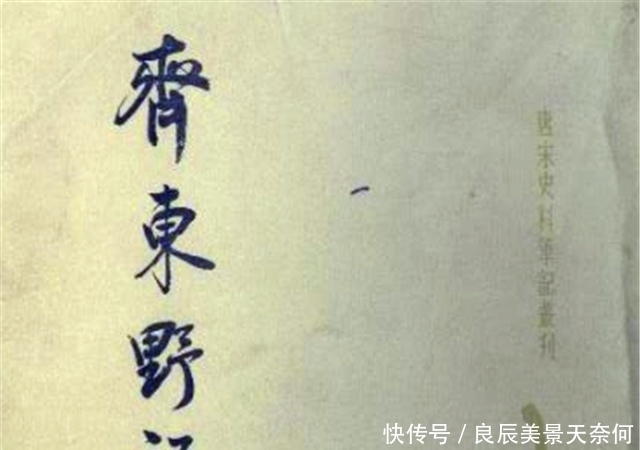 齊東野
唐宋史料筆記叢刊
快传号／良辰美景天奈何